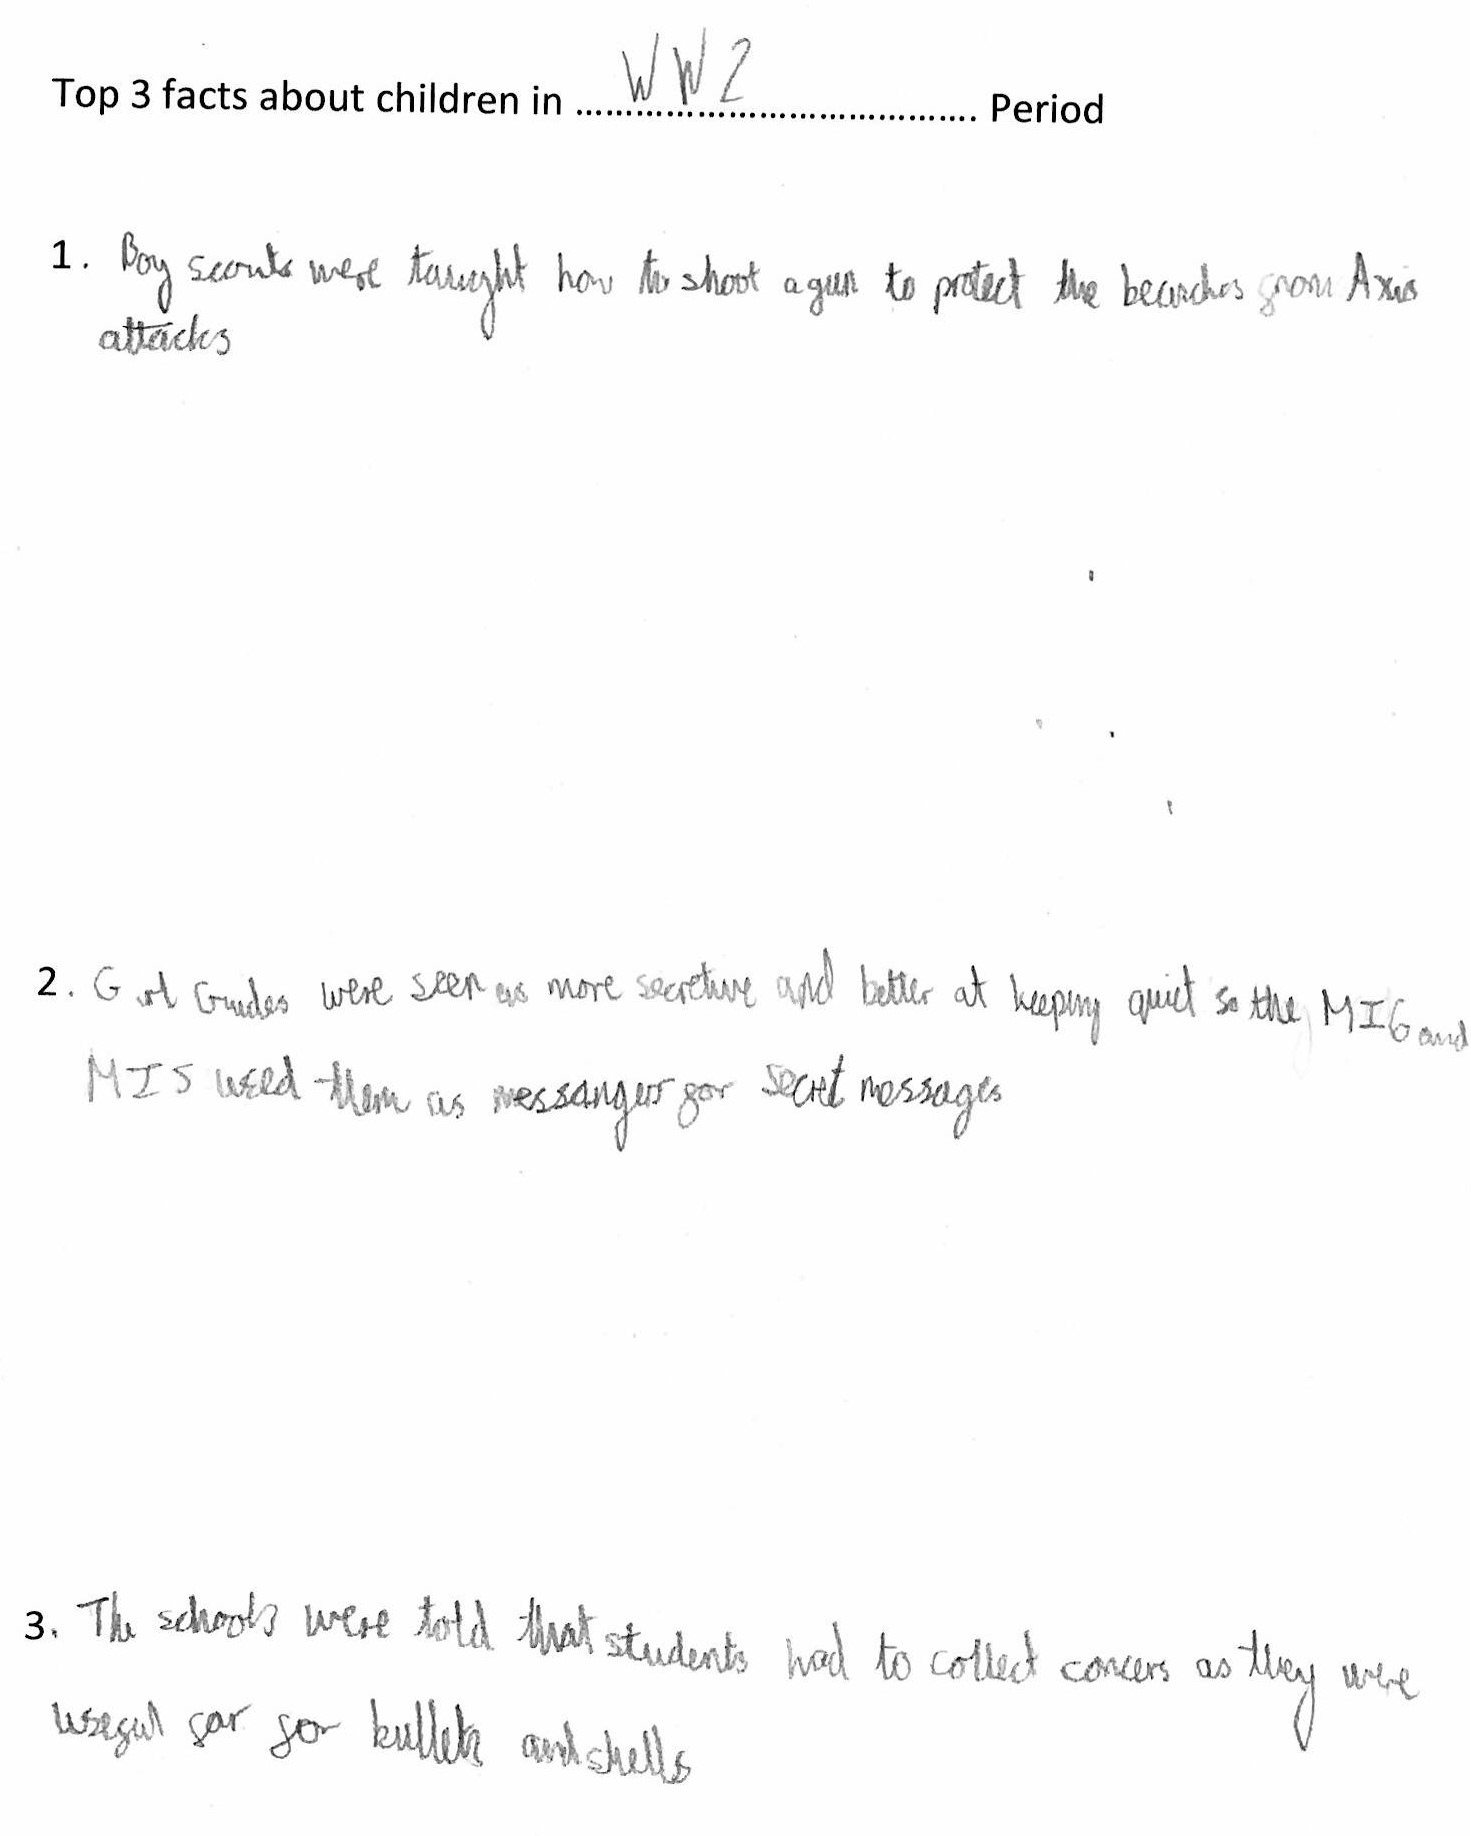 Top 3 facts about children in WW2 Period
1. Boy scouts were taught how to shoot a gun to protect the beaches from Axis
attacks
2. Girl Guides were seen as more secretive and better at keeping quiet so the MI6 and
MI5 used them as messangers for secret messages
3. The schools were told that students had to collect concers as they were
useful far for bullets and shells